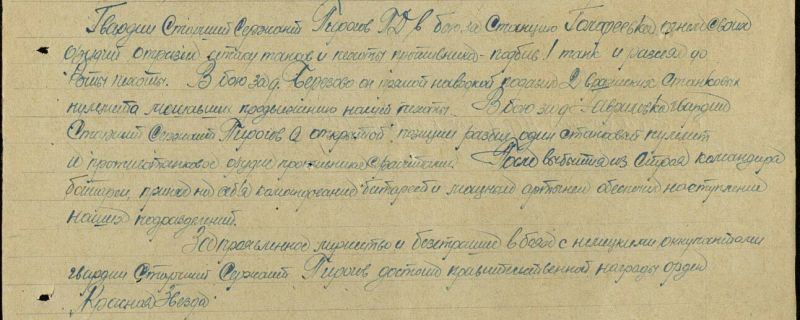 Гвардии Старший Сержант Пирогов в бою за Станцию огнем своих
орудий отразил атаку танков и пехоты противника - подбив 1 танк и рассеял до
роты пехоты. В бою за д. Березово он прямой наводкой подавил 2 вражеских станковых
пулемета мешавших продвижению нашей пехоты. В бою за д. гвардии
Старший Сержант Пирогов с открытой позиции разбил один станковый пулемет
и противотанковое орудие противника с расчетами. После выбытия из строя командира
батареи, принял на себя командование батареей и мощным артогнем обеспечил наступление
наших подразделений.
За проявленное мужество и бесстрашие в боях с немецкими оккупантами
гвардии Старший Сержант Пирогов достоин правительственной награды орден
"Красная Звезда"